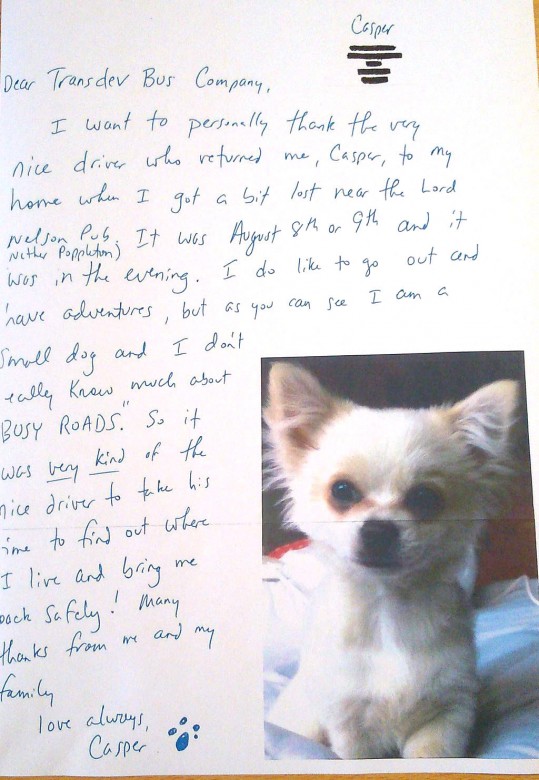 Casper
Dear Transdev Bus Company,
I want to personally thank the very
nice driver who returned me, Casper, to my
home when I got a bit lost near the Lord
Nelson Pub. It was August 8th or 9th and it
(Nether Poppleton)
was in the evening. I do like to go out and
have adventures, but as you can see I am a
small dog and I don't
really know much about
"BUSY ROADS." So it
was very kind of the
nice driver to take his
time to find out where
I live and bring me
back safely! Many
thanks from me and my
family
love always,
Casper